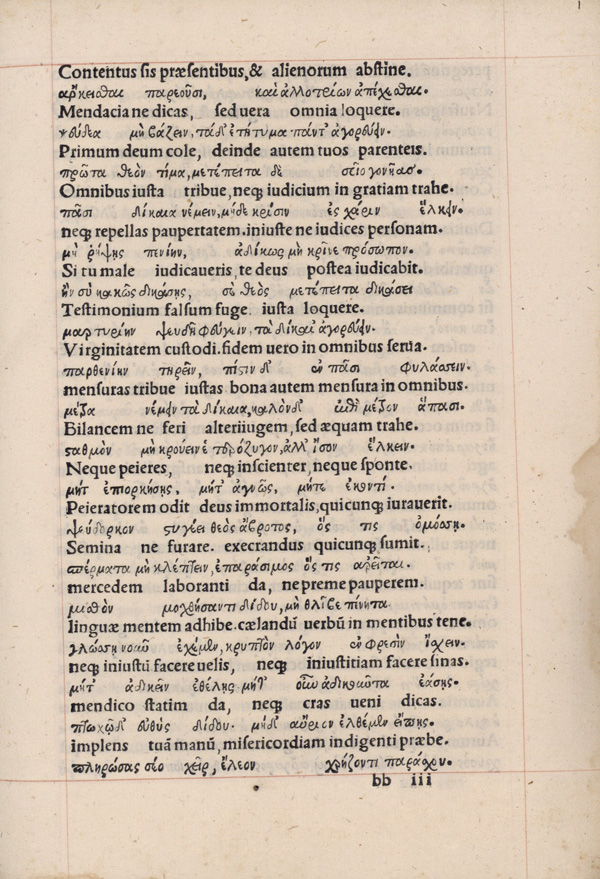 Contentus sis præsentibus, & alienorum abstine.
ἀρκεῖσθαι παρεοῦσι, καὶ ἀλλοτρίων ἀπέχεσθαι.
Mendacia ne dicas, sed uera omnia loquere.
ψεύδεα μὴ βάζειν, τὰ δ' ἐτήτυμα πάντ' ἀγορεύειν.
Primum deum cole, deinde autem tuos parenteis.
πρῶτα θεὸν τίμα, μετέπειτα δὲ σεῖο γονῆας.
Omnibus iusta tribue, neq; iudicium in gratiam trahe.
πᾶσι δίκαια νέμειν, μὴ δὲ κρίσιν ἐς χάριν ἕλκειν.
neq; repellas paupertatem. iniuste ne iudices personam.
μὴ ῥίψῃς πενίην, ἀδίκως μὴ κρῖνε πρόσωπον.
Si tu male iudicaueris, te deus postea iudicabit.
ἢν σὺ κακῶς δικάσῃς, σὲ θεὸς μετέπειτα δικάσει
Testimonium falsum fuge. iusta loquere.
μαρτυρίην ψευδῆ φεύγειν, τὰ δίκαι' ἀγορεύειν.
Virginitatem custodi. fidem uero in omnibus serua.
παρθενίην τηρεῖν, πίστιν δ' ἐν πᾶσι φυλάσσειν.
mensuras tribue iustas bona autem mensura in omnibus.
μέτρα νέμειν τὰ δίκαια, καλὸν δ' μέτρον ἅπασι.
Bilancem ne feri alteriiugem, sed æquam trahe.
σταθμὸν μὴ κρούειν ἑτερόζυγον, ἀλλ' ἴσον ἕλκειν.
Neque peieres, neq; inscienter, neque sponte.
μήτ' ἐπιορκήσῃς, μήτ' ἀγνὼς, μήτε ἑκοντί.
Peieratorem odit deus immortalis, quicunq; iurauerit.
ψεύδορκον στυγέει θεὸς ἄβροτος, ὅς τις ὀμόσσῃ.
Semina ne furare. execrandus quicunq; sumit.
σπέρματα μὴ κλέπτειν, ἐπαράσιμος ὅς τις
mercedem laboranti da, ne preme pauperem.
μισθὸν μοχθήσαντι δίδου, μὴ θλῖβε πένητα
linguæ mentem adhibe. cælandũ uerbũ in mentibus tene.
γλώσσῃ νοῦν ἐχέμεν, κρυπτὸν λόγον ἐν φρεσὶν ἴσχειν.
neq; iniustũ facere uelis, neq; iniustitiam facere sinas.
μήτ' ἀδικεῖν ἐθέλῃς μήτ' οὖν ἀδικοῦντα ἐάσῃς.
mendico statim da, neq; cras ueni dicas.
πτωχῷ δ' εὐθὺς δίδου. μὴ δ' αὔριον ἐλθέμεν εἴπῃς.
implens tuã manũ, misericordiam indigenti præbe.
πληρώσας σέο χεῖρ, ἔλεον χρῄζοντι παράσχου.
bb iii